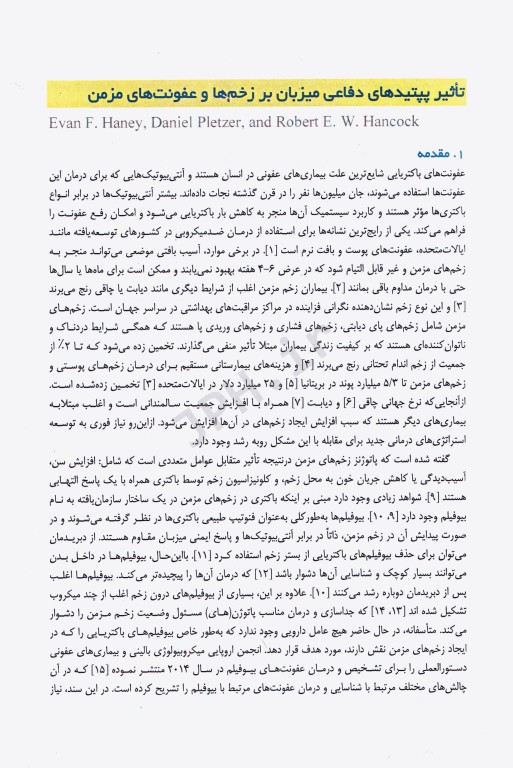 تأثیر پپتیدهای دفاعی میزبان بر زخم‌ها و عفونت‌های مزمن
Evan F. Haney, Daniel Pletzer, and Robert E. W. Hancock
۱. مقدمه
عفونت‌های باکتریایی شایع‌ترین علت بیماری‌های عفونی در انسان هستند و آنتی‌بیوتیک‌هایی که برای درمان این
عفونت‌ها استفاده می‌شوند، جان میلیون‌ها نفر را در قرن گذشته نجات داده‌اند. بیشتر آنتی‌بیوتیک‌ها در برابر انواع
باکتری‌ها مؤثر هستند و کاربرد سیستمیک آن‌ها منجر به کاهش بار باکتریایی می‌شود و امکان رفع عفونت را
فراهم می‌کند. یکی از رایج‌ترین نشانه‌ها برای استفاده از درمان ضدمیکروبی در کشورهای توسعه‌یافته مانند
ایالات‌متحده، عفونت‌های پوست و بافت نرم است [۱]. در برخی موارد، آسیب بافتی موضعی می‌تواند منجر به
زخم‌های مزمن و غیر قابل التیام شود که در عرض ۶-۴ هفته بهبود نمی‌یابند و ممکن است برای ماه‌ها یا سال‌ها
حتی با درمان مداوم باقی بمانند [۲]. بیماران زخم مزمن اغلب از شرایط دیگری مانند دیابت یا چاقی رنج می‌برند
[۳] و این نوع زخم نشان‌دهنده نگرانی فزاینده در مراکز مراقبت‌های بهداشتی در سراسر جهان است. زخم‌های
مزمن شامل زخم‌های پای دیابتی، زخم‌های فشاری و زخم‌های وریدی پا هستند که همگی شرایط دردناک و
ناتوان‌کننده‌ای هستند که بر کیفیت زندگی بیماران مبتلا تأثیر منفی می‌گذارند. تخمین زده می‌شود که تا ۲٪ از
جمعیت از زخم اندام تحتانی رنج می‌برند [۴] و هزینه‌های بیمارستانی مستقیم برای درمان زخم‌های پوستی و
زخم‌های مزمن تا ۵/۳ میلیارد پوند در بریتانیا [۵] و ۲۵ میلیارد دلار در ایالات‌متحده [۳] تخمین زده‌شده است.
ازآنجایی‌که نرخ جهانی چاقی [۶] و دیابت [۷] همراه با افزایش جمعیت سالمندانی است و اغلب مبتلابه
بیماری‌های دیگر هستند که سبب افزایش ایجاد زخم‌های در آن‌ها افزایش می‌شود. ازاین‌رو نیاز فوری به توسعه
استراتژی‌های درمانی جدید برای مقابله با این مشکل روبه رشد وجود دارد.
گفته شده است که پاتوژنز زخم‌های مزمن درنتیجه تأثیر متقابل عوامل متعددی است که شامل: افزایش سن،
آسیب‌دیدگی یا کاهش جریان خون به محل زخم، و کلونیزاسیون زخم توسط باکتری همراه با یک پاسخ التهابی
هستند [۹]. شواهد زیادی وجود دارد مبنی بر اینکه باکتری در زخم‌های مزمن در یک ساختار سازمان‌یافته به نام
بیوفیلم وجود دارد [۹، ۱۰]. بیوفیلم‌ها به‌طورکلی به‌عنوان فنوتیپ طبیعی باکتری‌ها در نظر گرفته می‌شوند و در
صورت پیدایش آن در زخم مزمن، ذاتاً در برابر آنتی‌بیوتیک‌ها و پاسخ ایمنی میزبان مقاوم هستند. از دبریدمان
می‌توان برای حذف بیوفیلم‌های باکتریایی از بستر زخم استفاده کرد [۱۱]. بااین‌حال، بیوفیلم‌ها در داخل بدن
می‌توانند بسیار کوچک و شناسایی آن‌ها دشوار باشد [۱۲] که درمان آن‌ها را پیچیده‌تر می‌کند. بیوفیلم‌ها اغلب
پس از دبریدمان دوباره رشد می‌کنند [۱۰]. علاوه بر این، بسیاری از بیوفیلم‌های درون زخم اغلب از چند میکروب
تشکیل شده اند [۱۳، ۱۴] که جداسازی و درمان مناسب پاتوژن(های) مسئول وضعیت زخم مزمن را دشوار
می‌کند. متأسفانه، در حال حاضر هیچ عامل دارویی وجود ندارد که به‌طور خاص بیوفیلم‌های باکتریایی را که در
ایجاد زخم‌های مزمن نقش دارند، مورد هدف قرار دهد. انجمن اروپایی میکروبیولوژی بالینی و بیماری‌های عفونی
دستورالعملی را برای تشخیص و درمان عفونت‌های بیوفیلم در سال ۲۰۱۴ منتشر نموده [۱۵] که در آن
چالش‌های مختلف مرتبط با شناسایی و درمان عفونت‌های مرتبط با بیوفیلم را تشریح کرده است. در این سند، نیاز